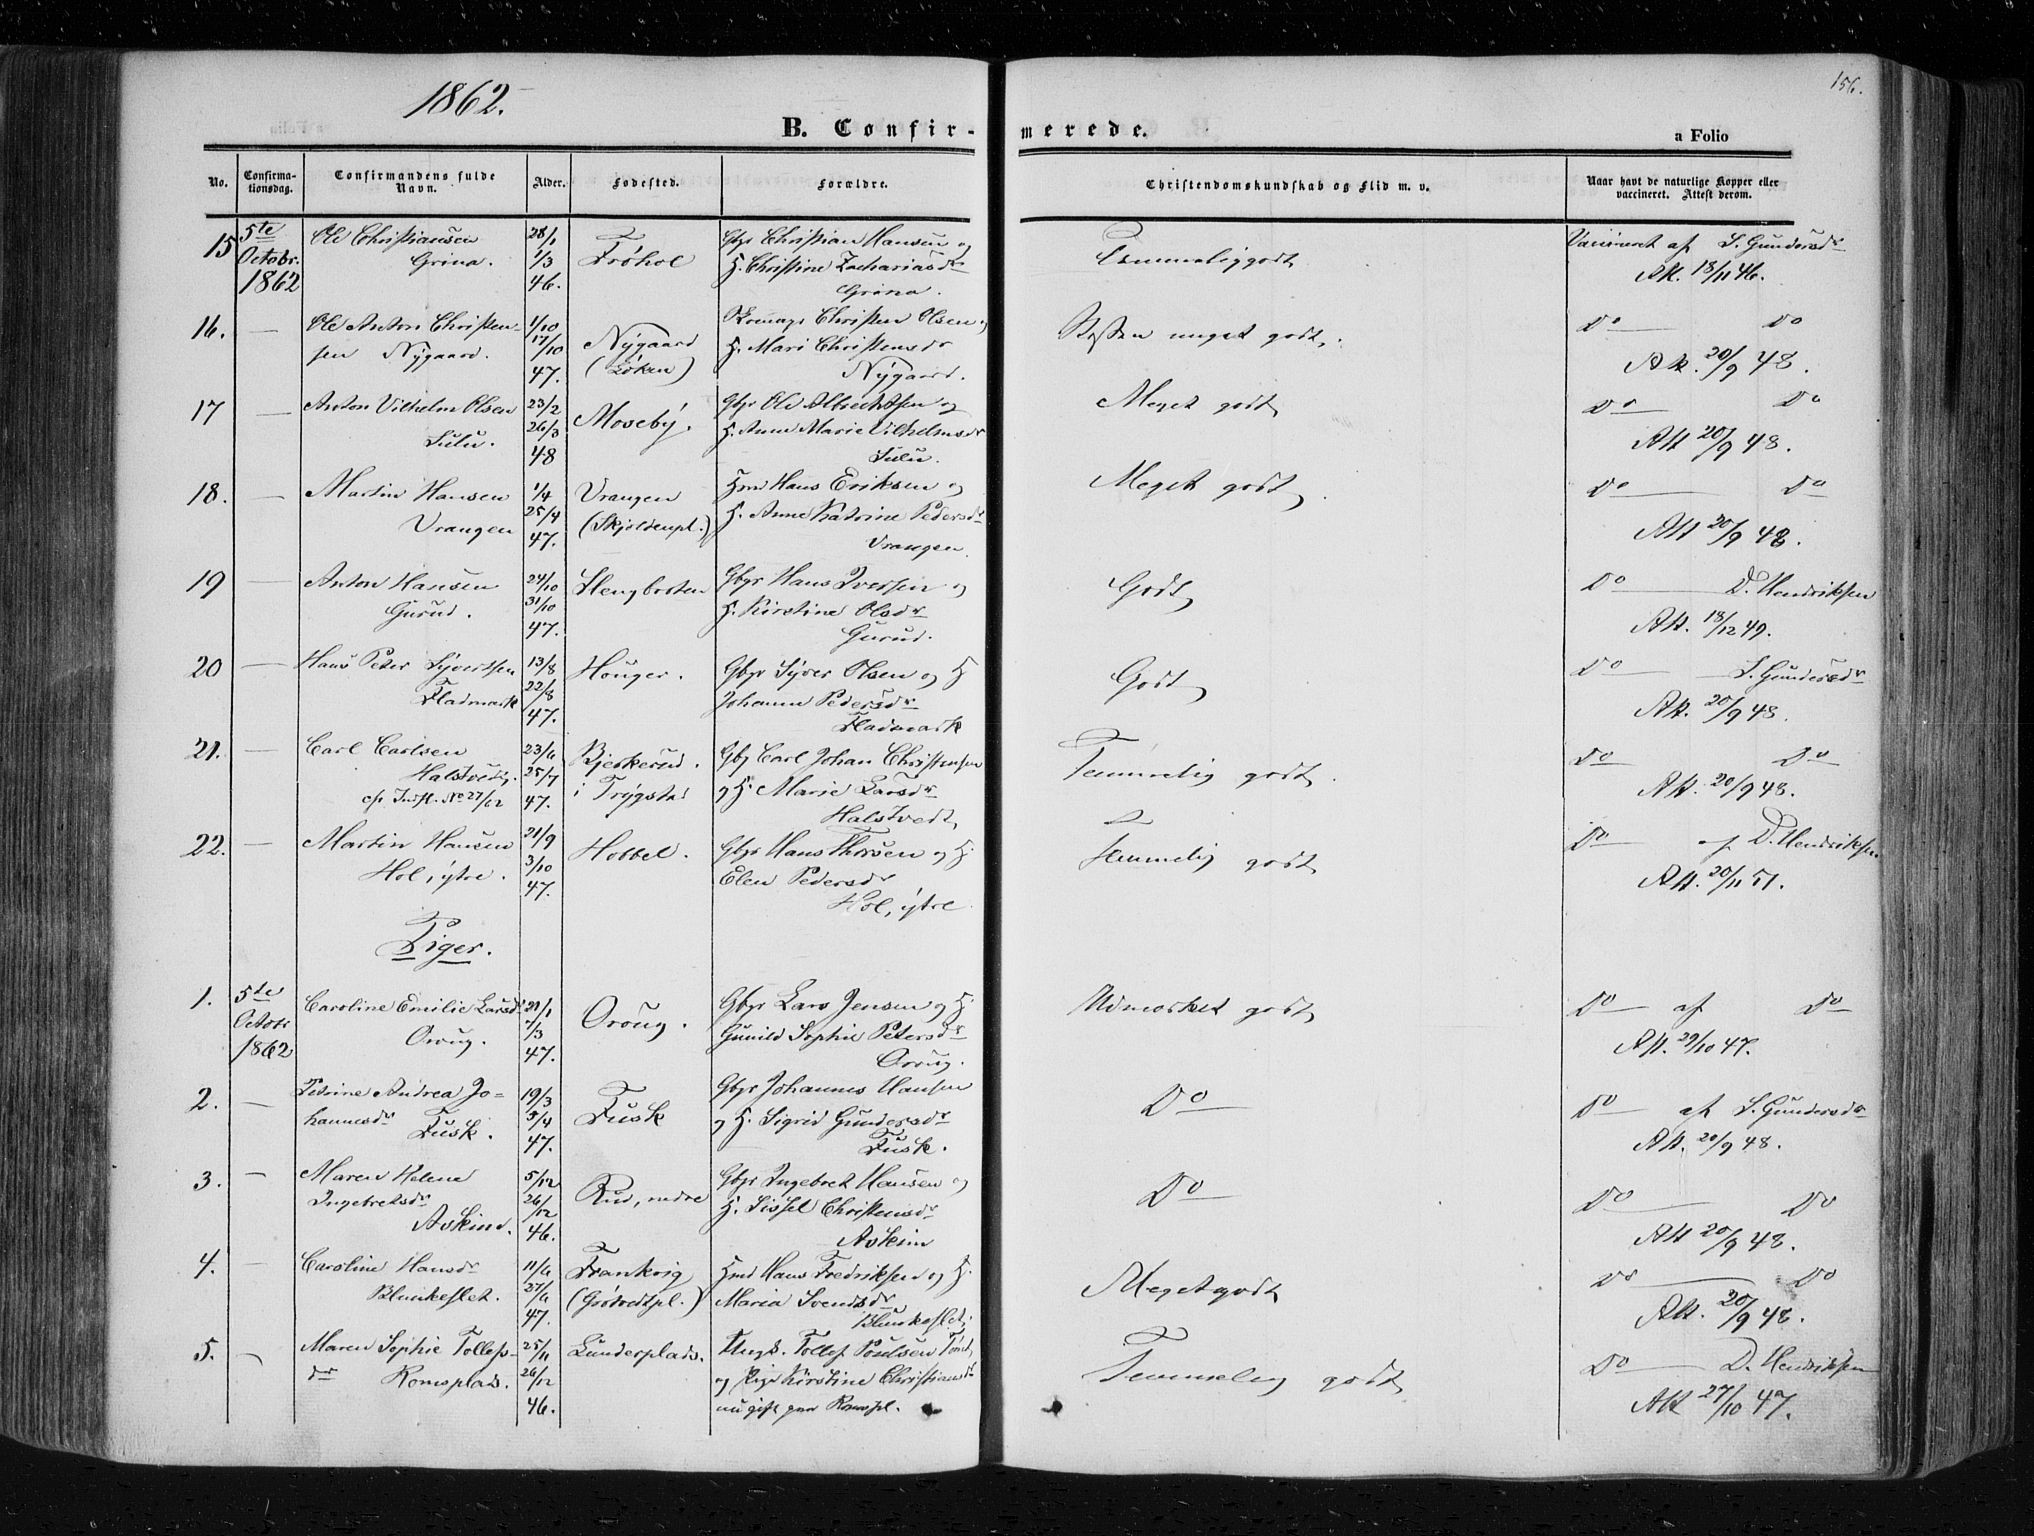 1862.
156.
B. Confirmerede.
a Folio
No.
Confirmationsdag.
Confirmandens fulde Navn.
Alder.
Fødested.
Forældre.
Christendomskundskab og Flid m. v.
Naar havt de naturlige Kopper eller vaccineret. Attest derom.
15 5te Octobr. 1862
Ole Christiansen
Grina.
28/1 1/3 46.
Frøhol
Gbr Christian Hansen og
H. Christine Zachariasdr
Grina.
Temmelig godt
Vaccineret af S. Gundersdr
Att. 18/11 46.
16. —
Ole Anton Christensen Nygaard.
1/10 17/10 47.
Nygaard
(Løken)
Christen Olsen og
H. Mari Christensdr
Nygaard.
Næsten meget godt.
Do — Do
Att. 20/9 48.
17 —
Anton Vilhelm Olsen
Sulu.
23/2 26/3 48
Moseby.
Gbr Ole Albrechtsen og
H. Anne Marie Vilhelmsdr
Sulu.
Meget godt
Do — Do
Att 20/9 48.
18. —
Martin Hansen
Vrangen
1/4 25/4 47.
Vrangen
(Skjoldenpl.)
Hmd Hans Eriksen og
H. Anne Katrine Pedersdr
Vrangen.
Meget godt
Do — Do
Att 20/9 48.
19 —
Anton Hansen
Gurud.
24/10 31/10 47.
Slengbosten
Gbr Hans Iversen og
H. Kirstine Olsdr
Gurud.
Godt
Do — D. Hendriksen
Att. 18/12 49.
20 —
Hans Peter Syversen
Fladmark
13/8 22/8 47.
Houger.
Gbr Syver Olsen og H
Johanne Pedersdr
Fladmark
Godt
Do — S. Gundersdr
Att. 20/9 48.
21. —
Carl Carlsen
Halstvedt,
cfr Indfl. No 27/62
23/6 25/7 47.
Bjerkerud.
i Trygstad
Gbr Carl Johan Christensen
og H. Marie Larsdr
Halstvedt
Temmelig godt.
Do — Do
Att. 20/9 48.
22. —
Martin Hansen
Hol, ytre.
21/9 3/10 47.
Hobbel.
Gbr Hans Thorsen og H.
Elen Pedersdr
Hol, ytre
Temmelig godt
Do — af D. Hendriksen
Att. 20/11 51.
Piger.
1. 5te Octobr 1862
Caroline Emilie Larsdr
Oroug.
21/1 7/3 47.
Oroug.
Gbr Lars Jensen og H.
Gunild Sophie Petersdr
Oroug.
Udmærket godt
Do — af Do
Att. 29/10 47.
2. —
Petrine Andrea Johannesdr
Fusk.
19/3 5/4 47.
Fusk
Gbr Johannes Hansen
og H. Sigrid Gundersdr
Fusk.
Do
Do — af S. Gundersdr
Att. 20/9 48.
3. —
Maren Helene
Ingebretsdr
Askim.
5/12 26/12 46.
Rud, nedre
Gbr Ingebret Hansen og
H. Sissel Christensdr
Askim
Do
Do — Do
Att 20/9 48.
4. —
Caroline Hansdr
Blankeflet.
11/6 27/6 47.
Frankrig
(Grøtvedtpl.)
Hmd Hans Fredriksen og H.
Maria Svendsdr
Blankeflet.
Meget godt
Do — Do
Att. 20/9 48.
5. —
Maren Sophie Tollefsdr Romsplads.
25/11 26/12 46.
Lunderplads.
Ungk. Tollef Poulsen
og Pige Kirstine Christiansdr
nu gift paa Romspl.
Temmelig godt
Do — D. Hendriksen
Att 27/10 47.